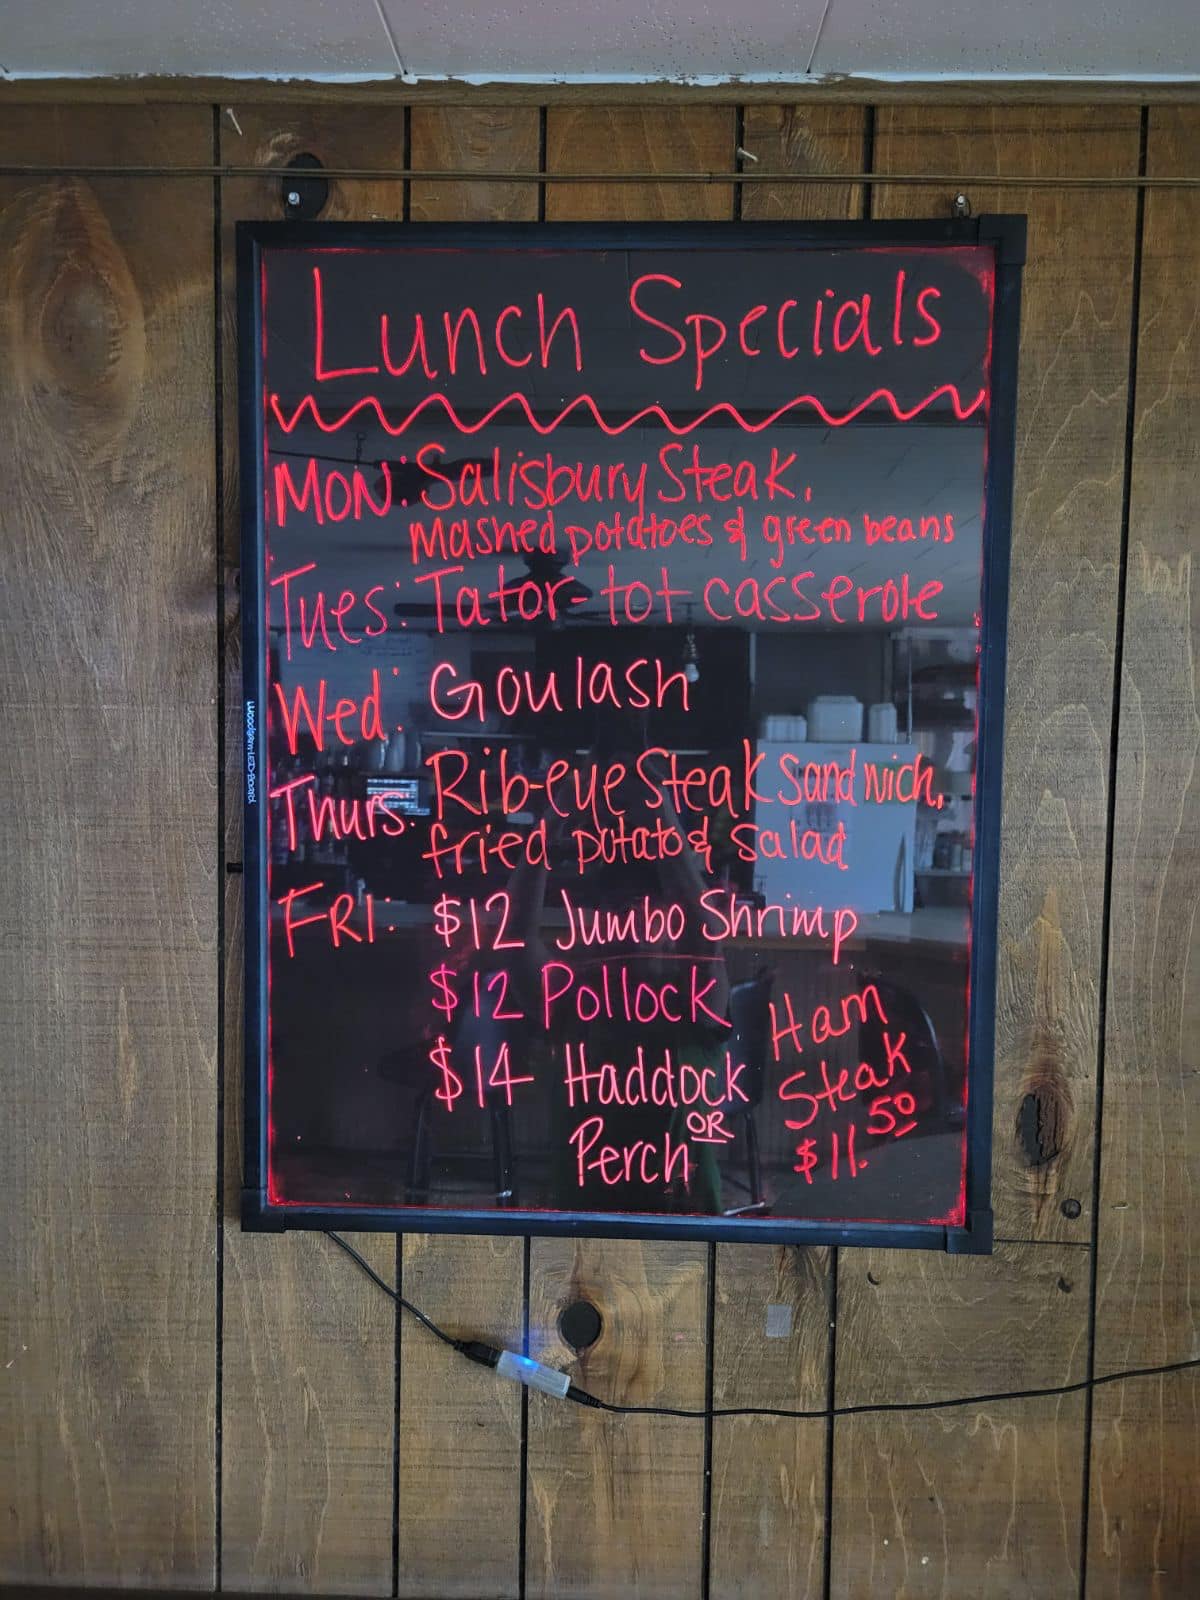 Lunch Specials
MON: Salisbury Steak,
mashed potatoes & green beans
Tues: Tator-tot casserole
Wed: Goulash
Thurs: Rib-eye Steak Sandwich,
fried potato & Salad
FRI: $12 Jumbo Shrimp
$12 Pollock
$14 Haddock
OR
Perch
Ham
Steak
$11.50
Woodsam LED Board